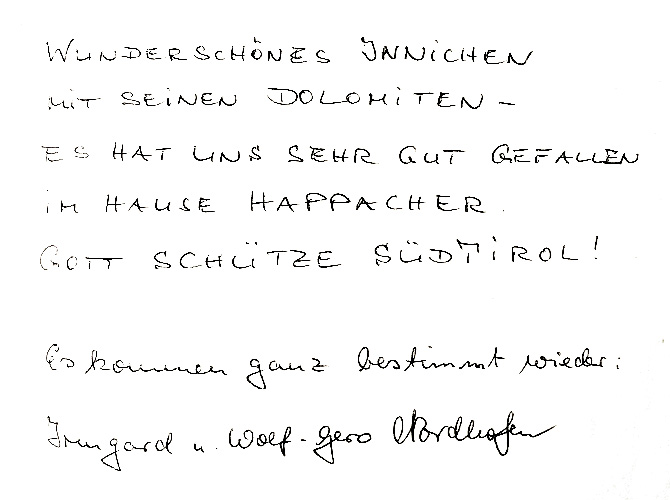 WUNDERSCHÖNES INNICHEN
MIT SEINEN DOLOMITEN –
ES HAT UNS SEHR GUT GEFALLEN
IM HAUSE HAPPACHER.
GOTT SCHÜTZE SÜDTIROL!
Es kommen ganz bestimmt wieder:
Irmgard u. Wolf-Gero Nordhofen